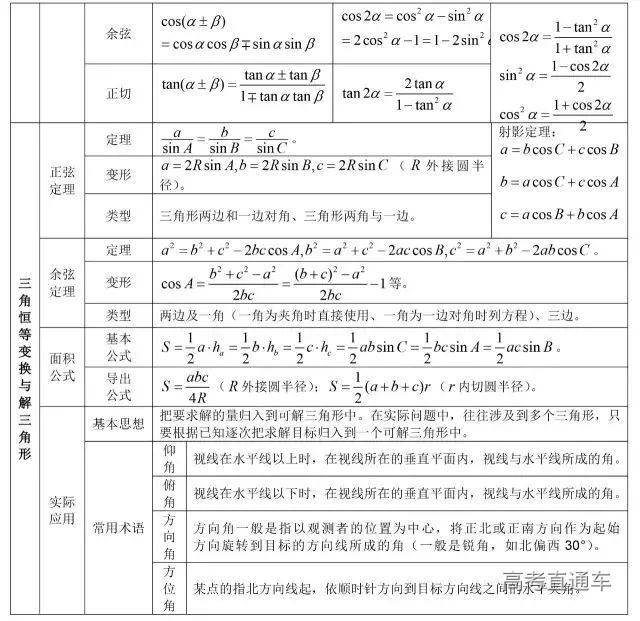 余弦
cos(α±β)
=cosαcosβ∓sinαsinβ
cos2α=cos²α−sin²α
=2cos²α−1=1−2sin²
cos2α=(1−tan²α)/(1+tan²α)
sin²α=(1−cos2α)/2
cos²α=(1+cos2α)/2
正切
tan(α±β)=(tanα±tanβ)/(1∓tanαtanβ)
tan2α=2tanα/(1−tan²α)
三角恒等变换与解三角形
正弦定理
定理
a/sinA=b/sinB=c/sinC。
变形
a=2RsinA,b=2RsinB,c=2RsinC（R外接圆半
径）。
类型
三角形两边和一边对角、三角形两角与一边。
射影定理：
a=bcosC+ccosB
b=acosC+ccosA
c=acosB+bcosA
余弦定理
定理
a²=b²+c²−2bccosA,b²=a²+c²−2accosB,c²=a²+b²−2abcosC。
变形
cosA=(b²+c²−a²)/2bc=((b+c)²−a²)/2bc−1等。
类型
两边及一角（一角为夹角时直接使用、一角为一边对角时列方程）、三边。
面积公式
基本公式
S=1/2a·hₐ=1/2b·h_b=1/2c·h_c=1/2absinC=1/2bcsinA=1/2acsinB。
导出公式
S=abc/4R（R外接圆半径）；S=1/2(a+b+c)r（r内切圆半径）。
实际应用
基本思想
把要求解的量归入到可解三角形中。在实际问题中，往往涉及到多个三角形，只
要根据已知逐次把求解目标归入到一个可解三角形中。
常用术语
仰角
视线在水平线以上时，在视线所在的垂直平面内，视线与水平线所成的角。
俯角
视线在水平线以下时，在视线所在的垂直平面内，视线与水平线所成的角。
方向角
方向角一般是指以观测者的位置为中心，将正北或正南方向作为起始
方向旋转到目标的方向线所成的角（一般是锐角，如北偏西30°）。
方位角
某点的指北方向线起，依顺时针方向到目标方向线之间的水平夹角。
高考直通车